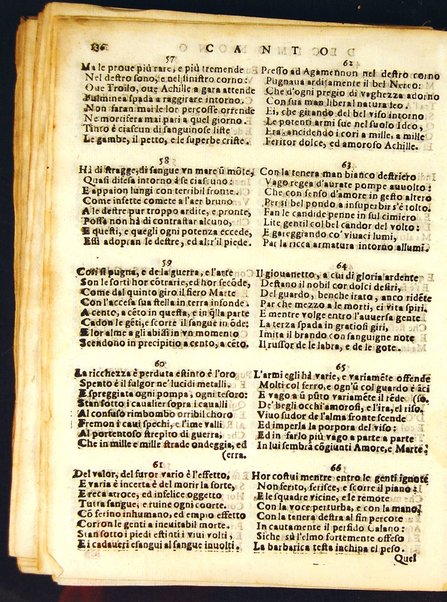 236 CANTO
57
Ma le proue più rare, e più tremende
Nel destro sono, e nel sinistro corno:
Oue Troilo, oue Achille a gara attende
Fulminea spada a raggirare intorno.
Non saran mai le lor percosse orrende
Nè mortifera mai pari a quel giorno.
Tinto è ciascun di sanguinose liste
Le gambe, il petto, e le superbe criste.
58
Hà di stragge, di sangue vn mare ũ mõte,
Quasi difesa intorno à se ciascuno:
E appaion lungi con terribil fronte
Come insette comete a l'aer bruno
A le destre pur troppo ardite, e pronte,
Possa non hà di contrastar alcuno,
E questi, e quegli ogni potenza eccede,
Essi adopran le destre, ed altr'il piede.
59
Cosi si pugna, e de la guerra, e l'arte
Son le sorti hor cotrarie, ed hor secõde,
Come dal quinto giro il fiero Marte
Con l'accesa sua stella in terra infonde.
A cento, a cẽto in questa, e in q̃lla parte
Cadon le gẽti, e scorre il sangue in õde:
Hor alme a gli abissi in vn momento
Scendono in precipitio a cento, a cẽto.
60
La ricchezza è perduta estinto è l'oro,
Spento è il fulgor ne' lucidi metalli.
E spreggiata ogni pompa, ogni tesoro:
Stan sotto i caualier sopra i caualli
Al confuso rimbombo orribil choro
Fremon i caui spechi, e l'ime valli
Al portentoso strepito di guerra,
Che in mille e mille strade ondeggia, ed
(erra.
61
Del valor, del furor vario è l'effetto,
E varia è incerta è del morir la sorte,
E reca atroce, ed infelice oggetto
Tutta sangue, e ruine ogni coorte.
Cõ ferino inhumano, ed empio effetto
Corron le genti a ineuitabil morte.
Stan sotto i piedi estinti i viui volti,
E i cadaueri esangui al sangue inuolti.
62
Presso ad Agamennon nel destro corno
Pugnaua arditamente il bel Nereo:
Che d'ogni pregio di vaghezza adorno
Con sua man liberal natura feo.
Ei, che gitando del bel viso intorno
Le potenti armi sue nel suolo Ideo,
Era, ancidendo i cori a mille, a mille
Feritor dolce, ed amoroso Achille.
63
Con la tenera man bianco destriero
Vago regea d'aurate pompe auuolto:
Che con senso d'amore in gesto altero
Per si bel pondo a insuperbir s'è tolto.
Fan le candide penne in sul cimiero
Lite gentil col bel candor del volto:
E gareggiando co' viuaci lumi,
Par la ricca armatura intorno allumi.
64
Il giouanetto, a cui di gloria ardente
Destano il nobil cor dolci desiri,
Del guardo, benche irato, anco ridẽte
Par che mezzo a le morti, ei vita spiri.
E mentre volge entro l'auuersa gente
La terza spada in gratiosi giri,
Imita il brando con sanguigne note
Il russor de le labra, e de le gote.
65
L'armi egli hà varie, e variamẽte offende
Molti col ferro, e ogn'ũ col guardo è ãci
E vago a ũ pũto variamẽte il rẽde (so.
De' begli occhi amorosi, e l'ira, el riso,
Viuo sudor de l'alma fronte scende
Ed imperla la porpora del viso:
Ed in farlo più vago a parte a parte
In lui sembrã cõgiunti Amore, e Marte.
66
Hor costui mentre entro le genti ignote
Non ferito, ferisce, e scorre il piano:
E le squadre vicine, e le remote
Con la voce perturba, e con la mano,
Con la tenera destra al fin percote
In cautamente il perfido Calano:
Siche sù l'elmo fortemente offeso
La barbarica testa inchina el peso.
Quel